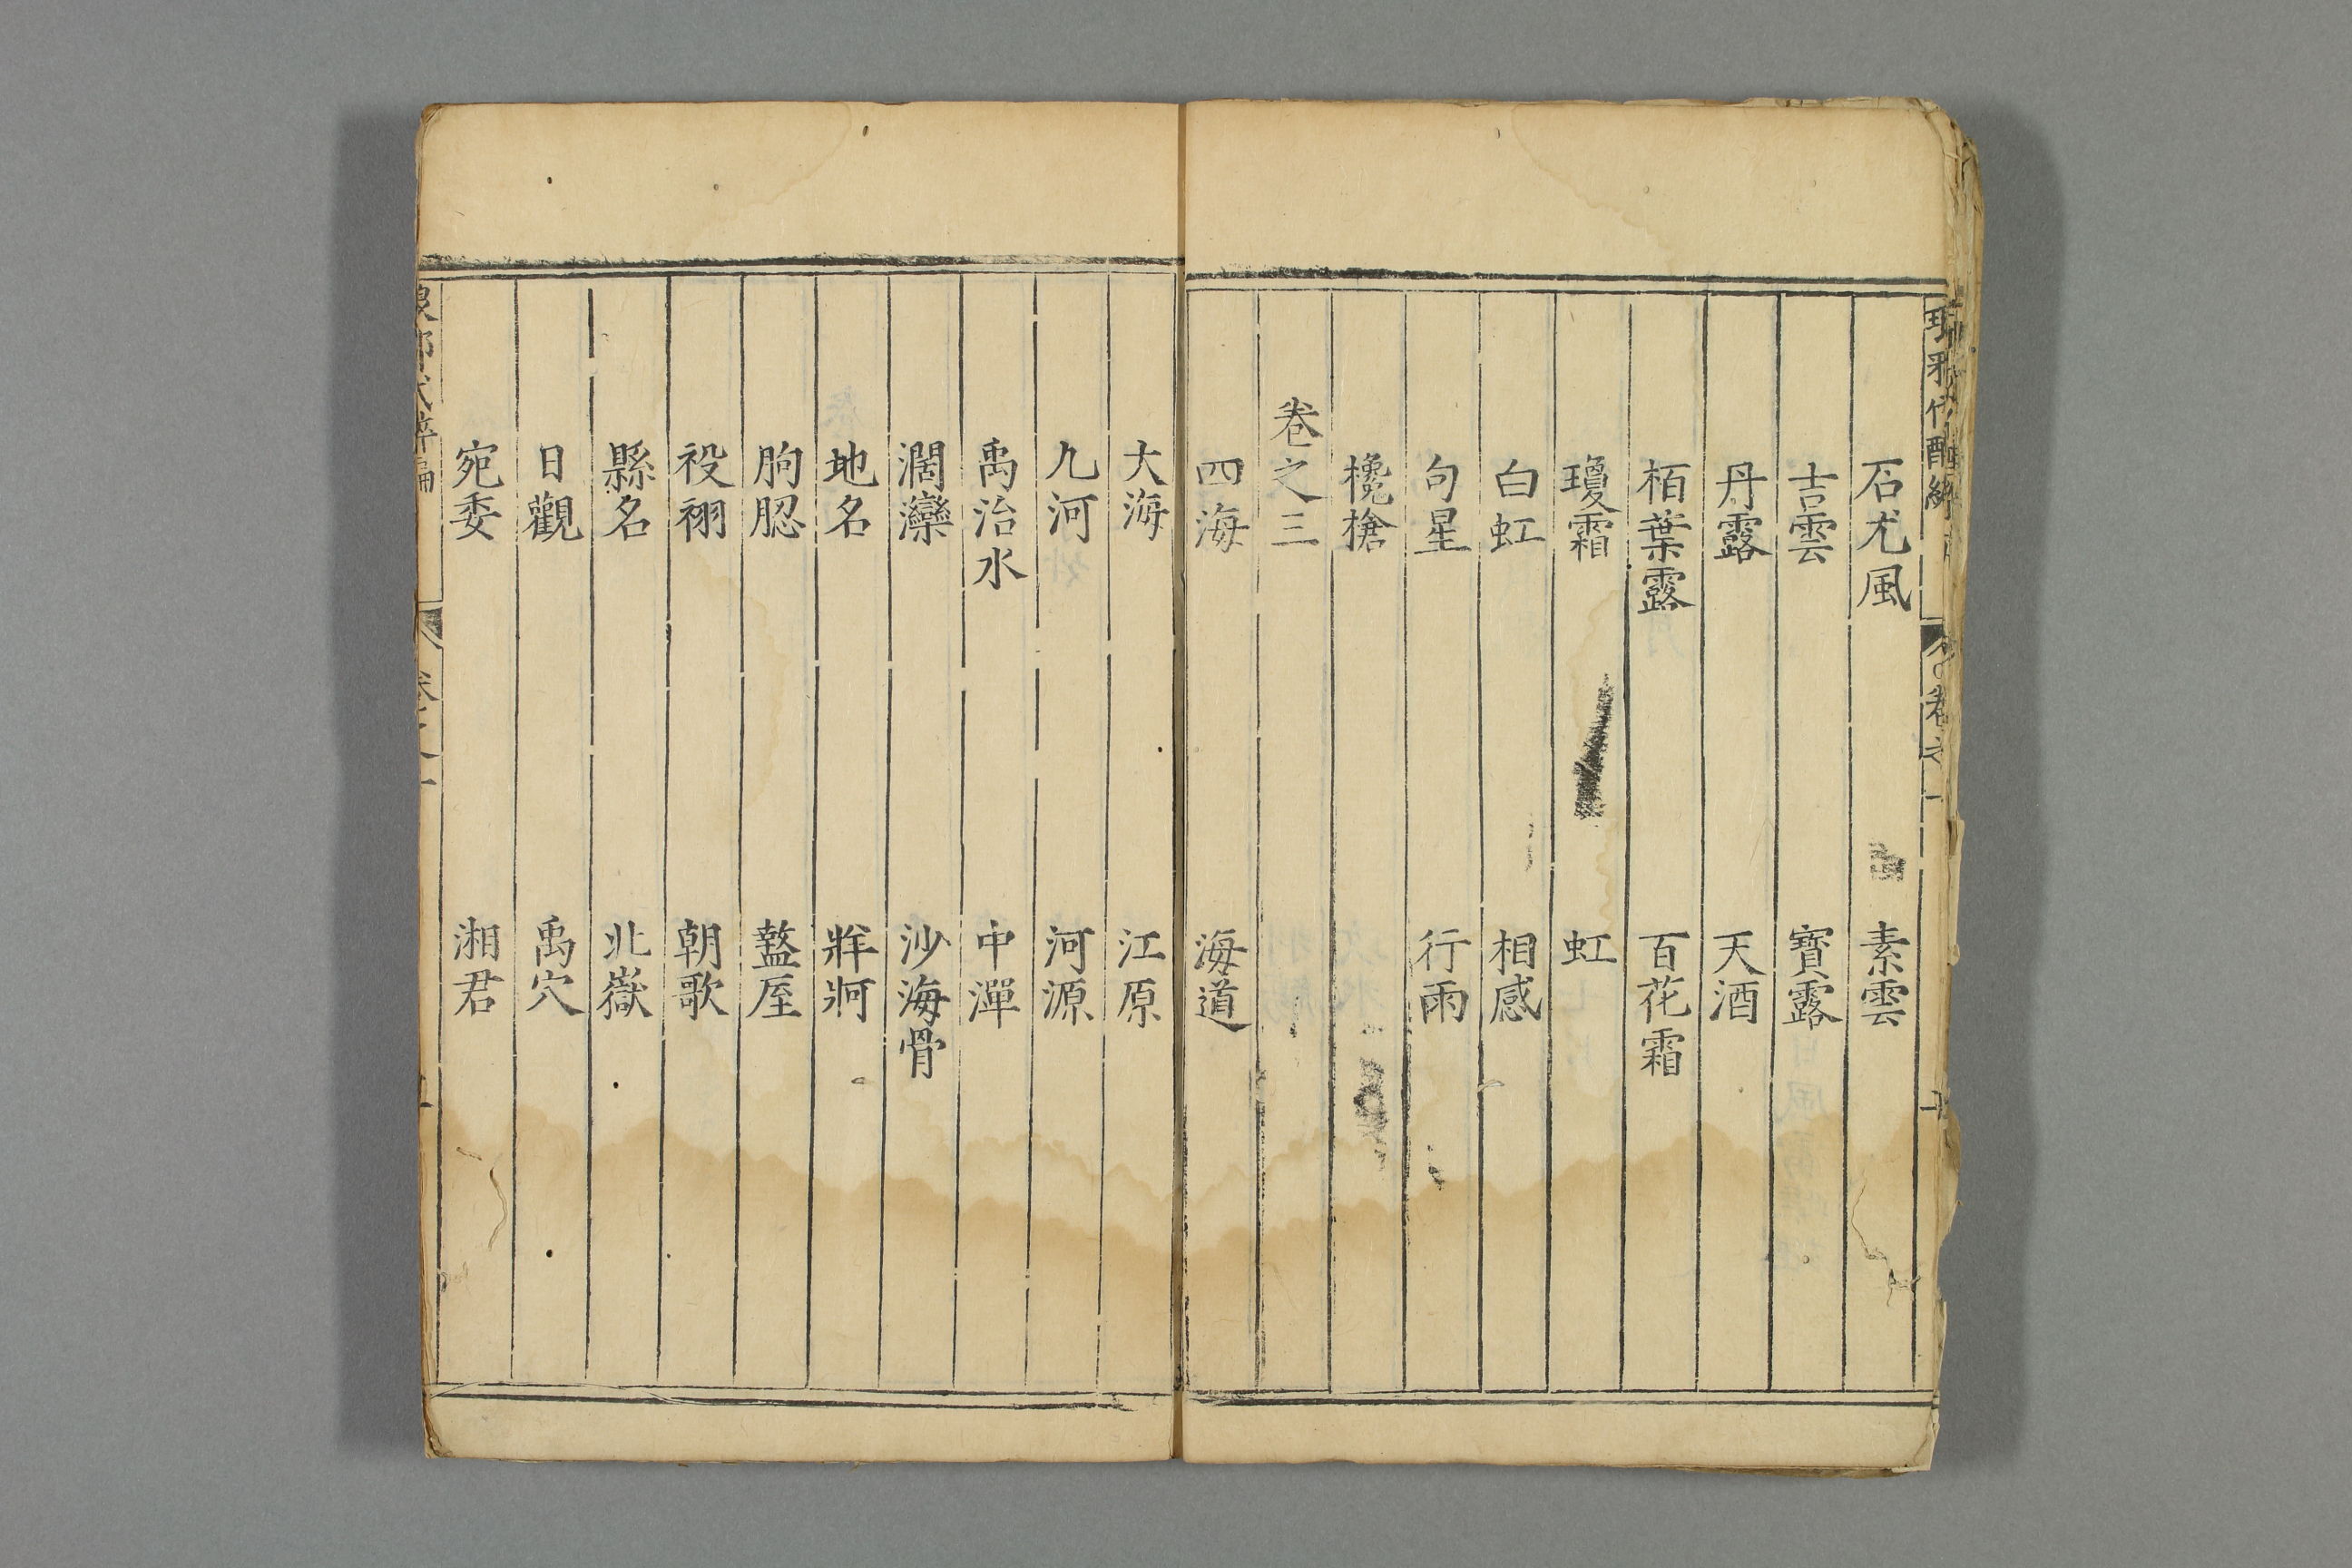 石尤風 素雲
吉雲 寳露
丹露 天酒
栢葉露 百花霜
瓊霜 虹
白虹 相感
句星 行雨
欃槍
卷之三
四海 海道
大海 江原
九河 河源
禹治水 中潬
濶灤 沙海骨
地名 牂牁
朐䏰 盩厔
祋祤 朝歌
縣名 北嶽
日觀 禹穴
宛委 湘君